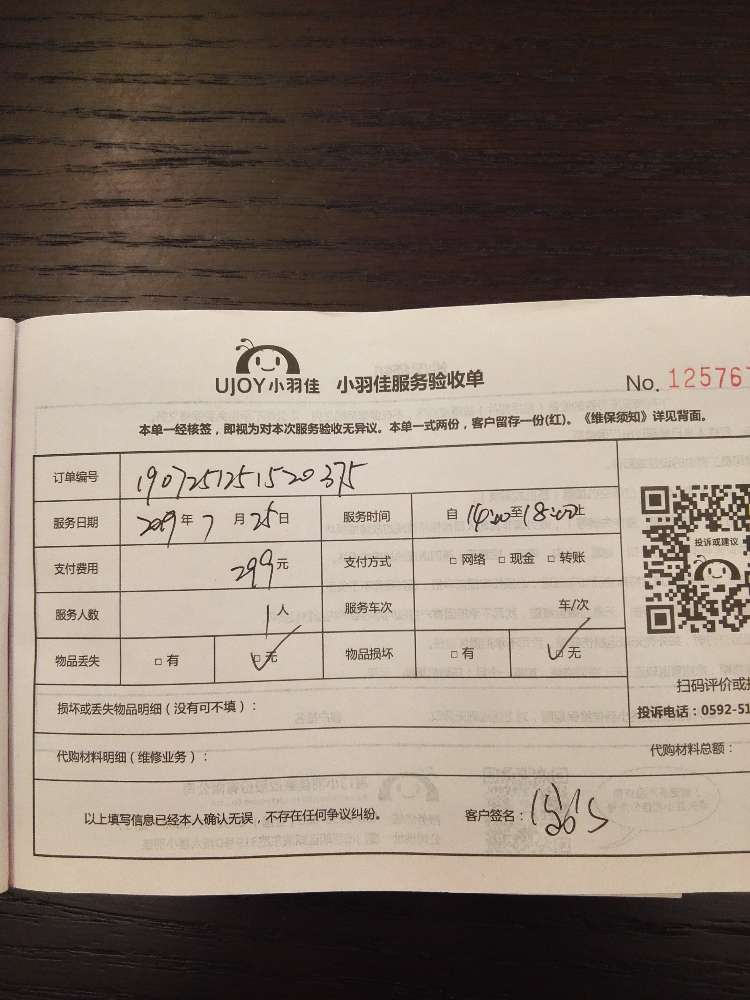 UJOY小羽佳 小羽佳服务验收单 No. 125767
本单一经核签，即视为对本次服务验收无异议。本单一式两份，客户留存一份(红)。《维保须知》详见背面。
订单编号 1907251251520375
服务日期 2019年7月25日 服务时间 自14:00至18:00止
支付费用 299元 支付方式 □网络 □现金 □转账
投诉或建议
服务人数 1人 服务车次 车/次
物品丢失 □有 □无 物品损坏 □有 □无
扫码评价或
损坏或丢失物品明细（没有可不填）：
投诉电话：0592-51
代购材料明细（维修业务）：
代购材料总额：
以上填写信息已经本人确认无误，不存在任何争议纠纷。 客户签名：